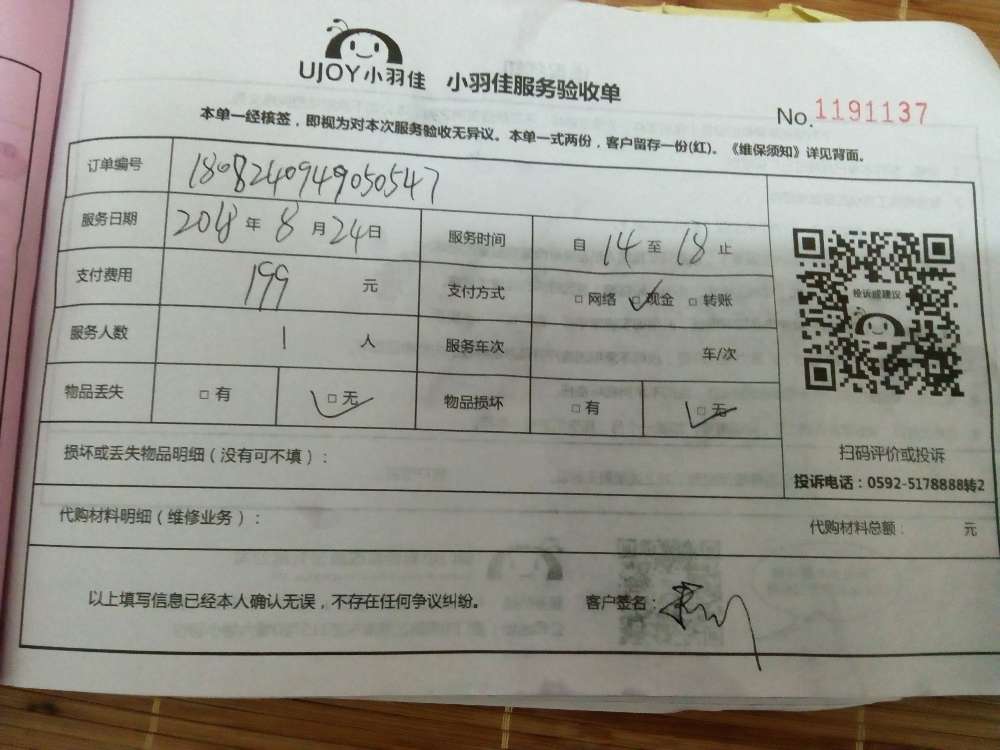 UJOY小羽佳 小羽佳服务验收单
No.1191137
本单一经核签，即视为对本次服务验收无异议。本单一式两份，客户留存一份(红)。《维保须知》详见背面。
订单编号 1808240949050547
服务日期 2018年8月24日 服务时间 自14至18止
支付费用 199 元 支付方式 □网络 □现金 □转账
服务人数 1 人 服务车次 车/次
物品丢失 □有 □无 物品损坏 □有 □无
投诉或建议
扫码评价或投诉
投诉电话：0592-5178888转2
损坏或丢失物品明细（没有可不填）：
代购材料明细（维修业务）： 代购材料总额： 元
以上填写信息已经本人确认无误，不存在任何争议纠纷。 客户签名：